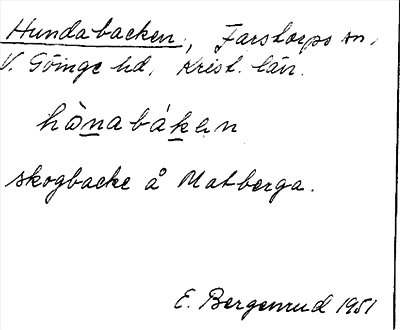 Hundabacken, Farstorps sn,
V. Göinge hd, Krist. län.
hònabákan
skogbacke å Matberga.
E. Bergenrud 1951